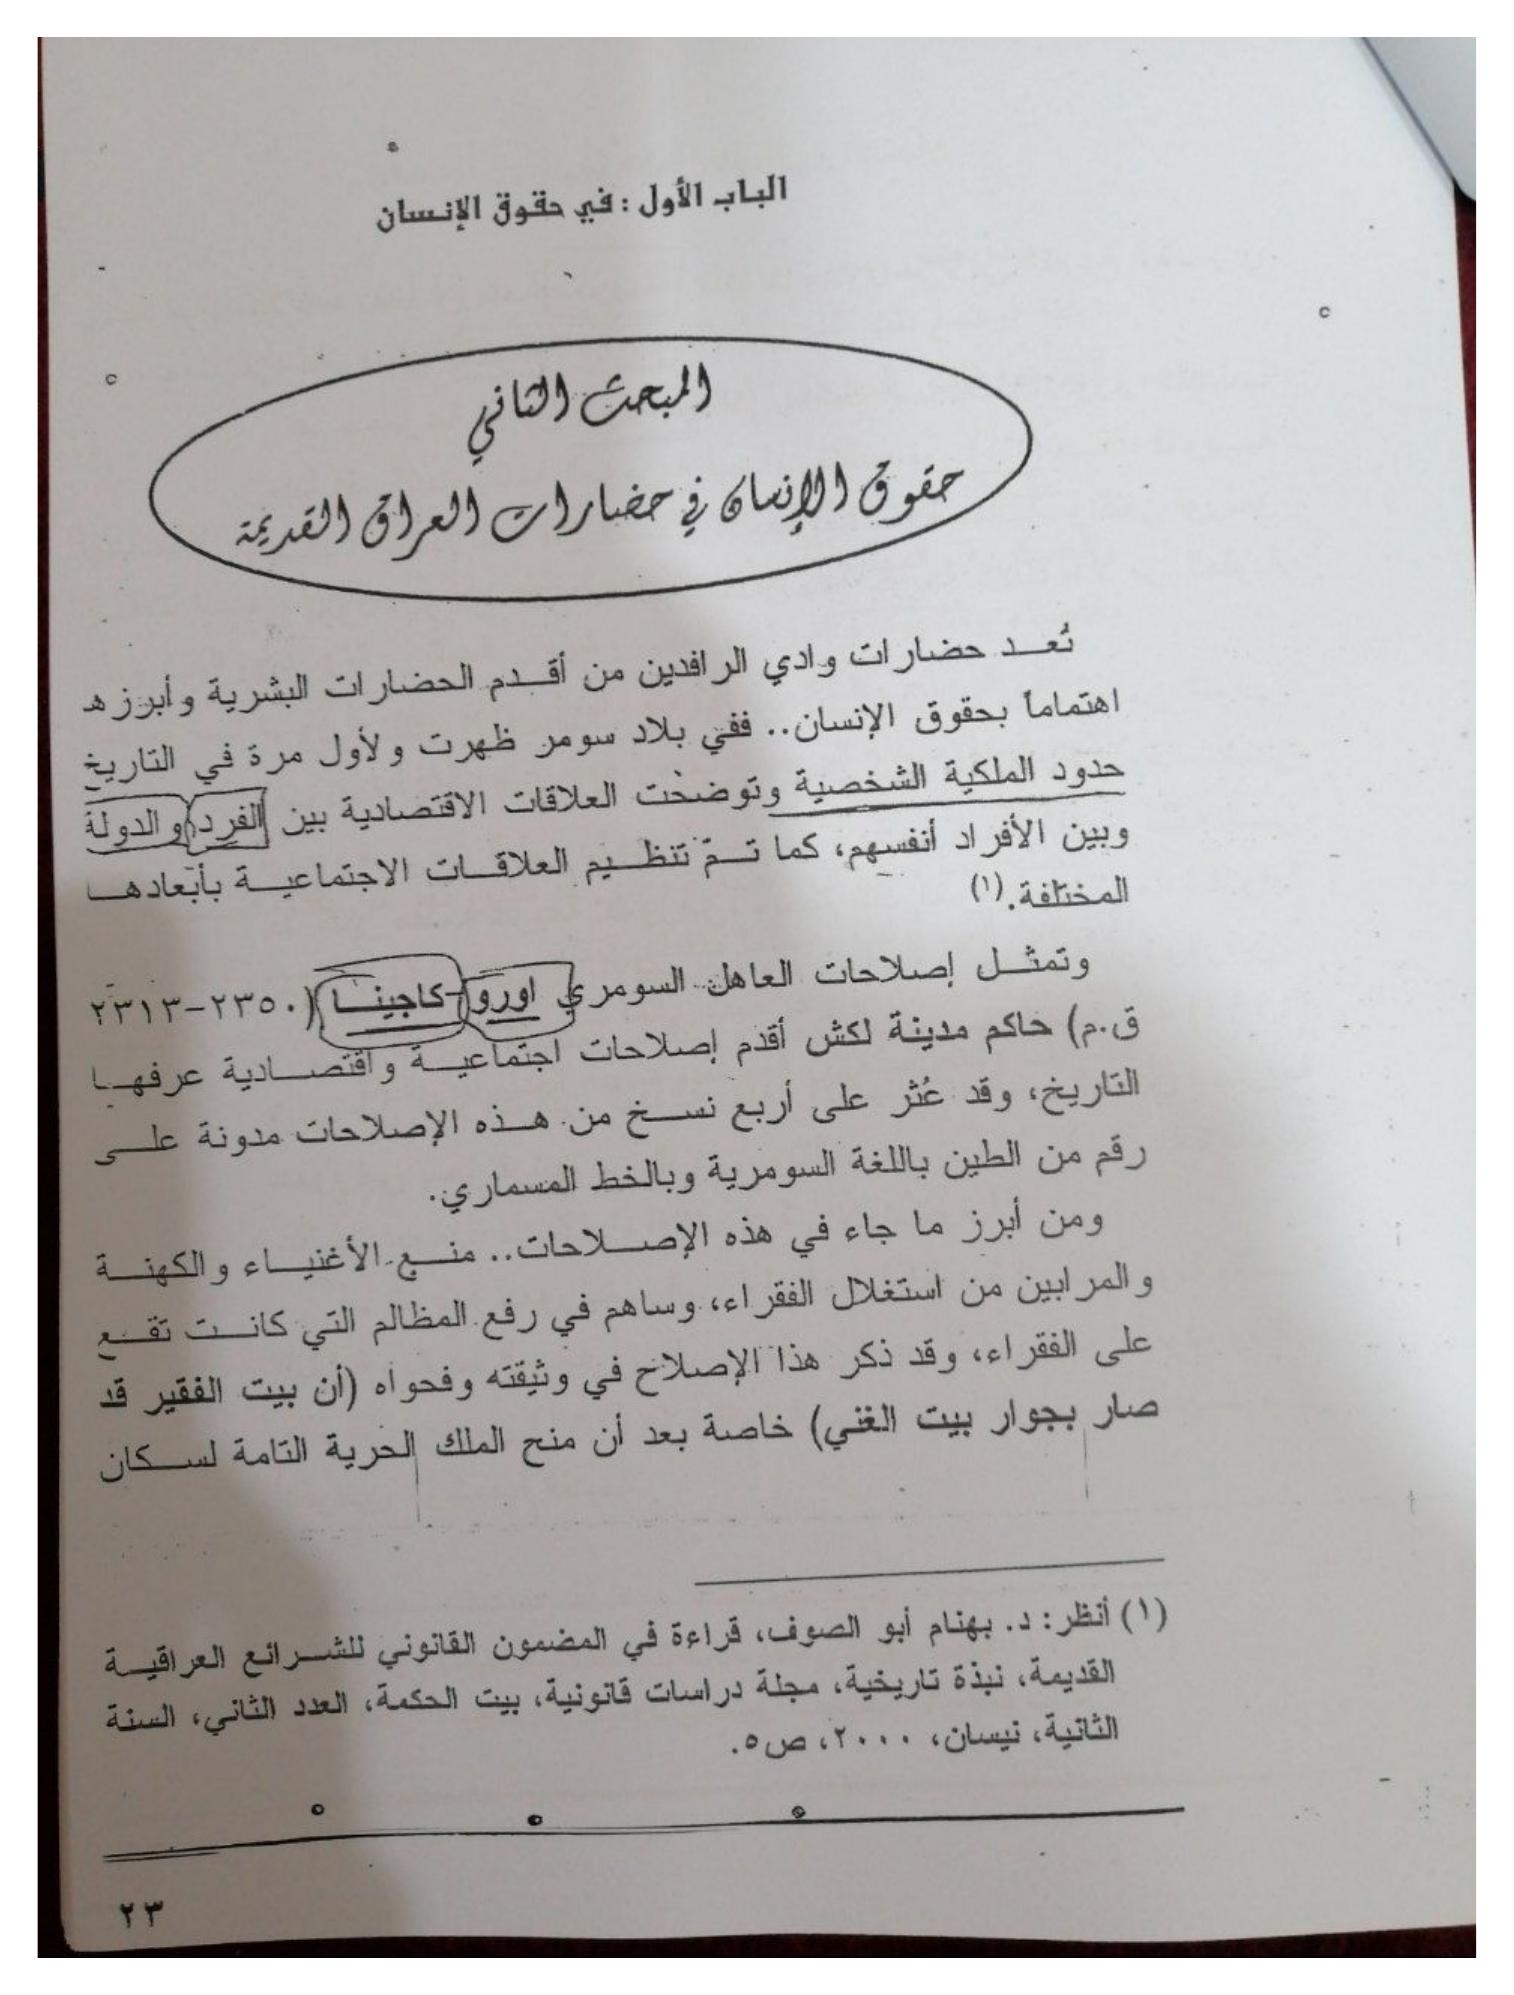 الباب الأول : في حقوق الإنسان
المبحث الثاني
حقوق الإنسان في حضارات العراق القديمة
تُعد حضارات وادي الرافدين من أقدم الحضارات البشرية وأبرزه
اهتماماً بحقوق الإنسان.. ففي بلاد سومر ظهرت ولأول مرة في التاريخ
حدود الملكية الشخصية وتوضحت العلاقات الاقتصادية بين الفرد والدولة
وبين الأفراد أنفسهم، كما تمّ تنظيم العلاقات الاجتماعية بأبعادها
المختلفة.(١)
وتمثل إصلاحات العاهل السومري اورو-كاجينا (٢٣٥٠-٢٣١٣
ق.م) حاكم مدينة لكش أقدم إصلاحات اجتماعية واقتصادية عرفها
التاريخ، وقد عُثر على أربع نسخ من هذه الإصلاحات مدونة على
رقم من الطين باللغة السومرية وبالخط المسماري.
ومن أبرز ما جاء في هذه الإصلاحات.. منع الأغنياء والكهنة
والمرابين من استغلال الفقراء، وساهم في رفع المظالم التي كانت تقع
على الفقراء، وقد ذكر هذا الإصلاح في وثيقته وفحواه (أن بيت الفقير قد
صار بجوار بيت الغني) خاصة بعد أن منح الملك الحرية التامة لسكان
(١) أنظر: د. بهنام أبو الصوف، قراءة في المضمون القانوني للشرائع العراقية
القديمة، نبذة تاريخية، مجلة دراسات قانونية، بيت الحكمة، العدد الثاني، السنة
الثانية، نيسان، ٢٠٠٠، ص٥.
٢٣